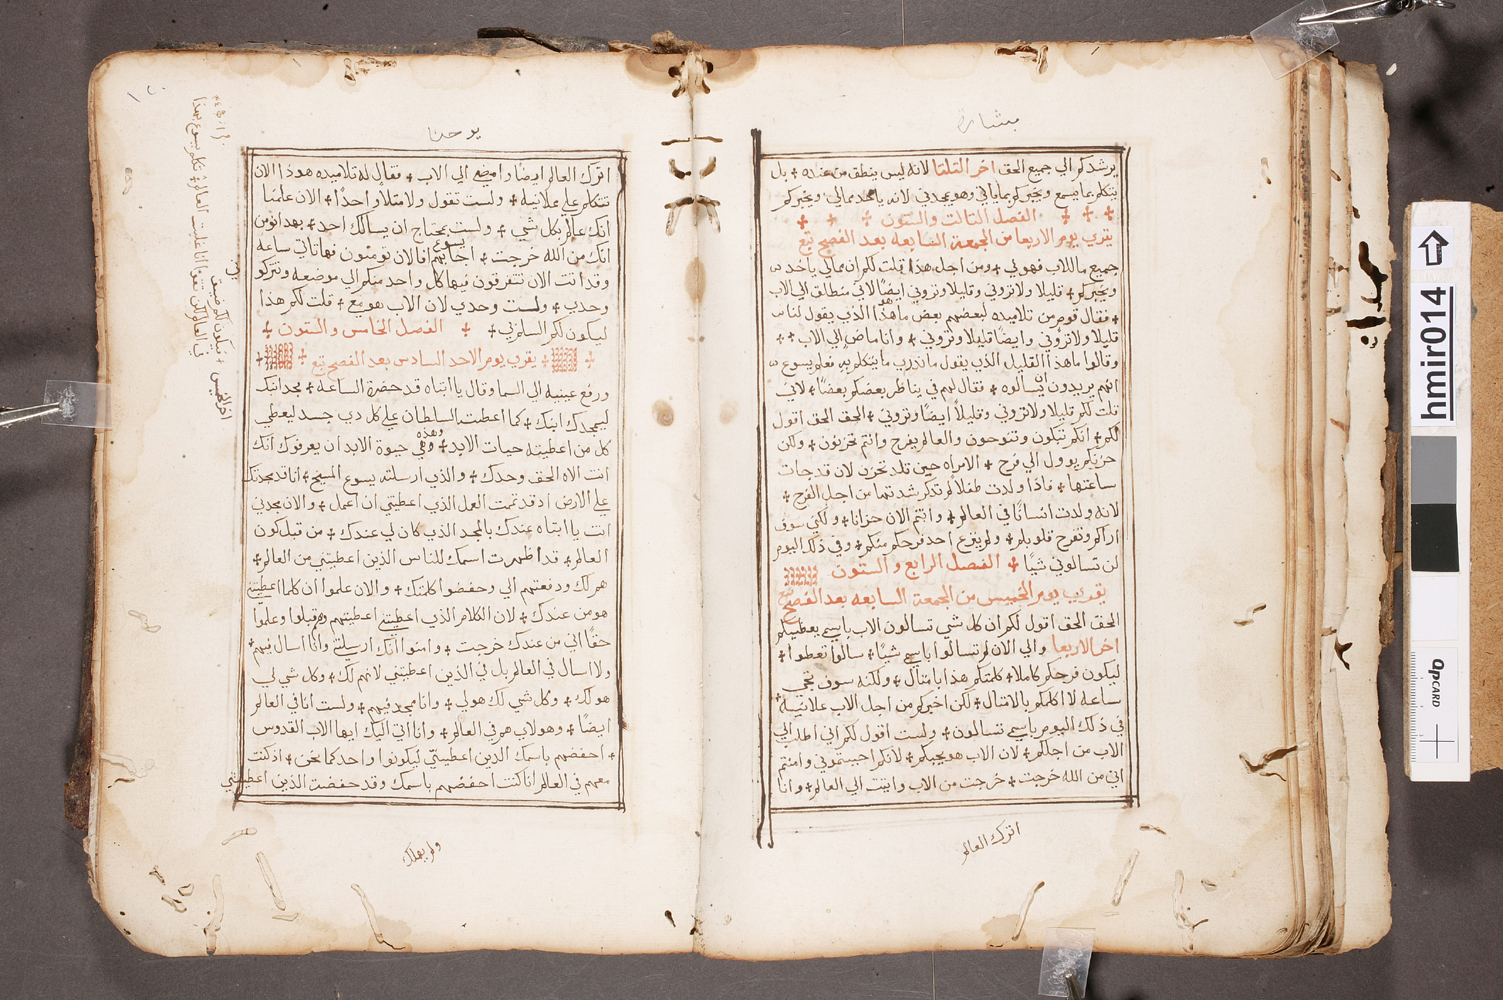 بشارة
يرشدكم الي جميع الحق اخر التلتا لانه ليس ينطق من عنده + بل
يتكلم بما يسمع ويخبركم بما ياتي وهو يمجدني لانه ياخد ممالي ويخبركم
+ + + الفصل التالت والستون + + +
يقري يوم الاربعا من الجمعة السابعه بعد الفصح تبع
جميع ما للاب فهو لي + ومن اجل هذا قلت لكم ان ممالي ياخد
ويخبركم + قليلا ولا تروني وقليلا وتروني ايضًا لاني منطلق الي الاب
+ فقال قوم من تلاميده لبعضهم بعض ما هو هذا الذي يقول لنا
قليلا ولا تروني وايضًا قليلا وتروني + وانا ماض الي الاب + +
وقالوا ما هذا القليل الذي يقول ما ندري ما يتكلم به فعلم يسوع
انهم يريدون ان يسالوه + فقال لهم في يناظر بعضكم بعضًا + لاني
قلت لكم قليلا ولا تروني وقليلاً ايضًا وتروني + الحق الحق اقول
لكم + انكم تبكون وتنوحون والعالم يفرح وانتم تحزنون + ولكن
حزنكم يوول الي فرح + الامراه حين تلد تحزن لان قد جات
ساعتها + فاذا ولدت طفلاً لم تدكر شدتها من اجل الفرح +
لانه ولدت انسانًا في العالم + وانتم الان حزانا + ولكني سوف
اراكم وتفرح قلوبكم + ولم ينزع احد فرحكم منكم + وفي ذلك اليوم
لن تسالوني شيًا + الفصل الرابع والستون
يقري يوم الخميس من الجمعة السابعه بعد الفصح تبع
الحق الحق اقول لكم ان كل شي تسالون الاب باسمي يعطيكم
اخر الاربعا والي الان لم تسالوا باسمي شيًا + سالوا تعطوا +
ليكون فرحكم كاملا + كلمتكم هذا بامتال + ولكنه سوف تجي
ساعه لا اكلمكم بالامتال + لكن اخبركم من اجل الاب علانية +
في ذلك اليوم باسمي تسالون + ولست اقول لكم اني اطلب الي
الاب من اجلكم + لان الاب هو يحبكم + لانكم احببتموني وامنتم
اني من الله خرجت + خرجت من الاب واتيت الي العالم + وانا
اترك العالم
يوحنا
اترك العالم ايضًا وامضي الي الاب + فقال له تلاميده هوذا الان
تتكلم علي علانيه + ولست تقول ولا متلاً واحدًا + الان علمنا
انك عالم بكل شي + ولست تحتاج ان يسالك احد + بهدا نومن
انك من الله خرجت + اجابهم يسوع افالان تومنون فهاتاتي ساعه
وقد اتت الان تتفرقون فيها كل واحد منكم الي موضعه وتتركو
وحدي + ولست وحدي لان الاب هو مع + قلت لكم هذا
ليكون لكم السلم بي + + الفصل الخامس والستون +
+ يقري يوم الاحد السادس بعد الفصح تبع +
ورفع عينيه الي السما وقال يا ابتاه قد حضرة الساعة + مجد ابنك
ليمجدك ابنك + كما اعطيت السلطان علي كل دي جسد ليعطي
كل من اعطيته حيات الابد + وهذه هي حيوة الابد ان يعرفوك انك
انت الاه الحق وحدك + والذي ارسلته يسوع المسيح + انا قد مجدتك
علي الارض اد قد تممت العمل الذي اعطيتني ان اعمل + والان مجدني
انت يا ابتاه عندك بالمجد الذي كان لي عندك + من قبل كون
العالم + قد اظهرت اسمك للناس الذين اعطيتني من العالم +
هم لك ودفعتهم الي وحفضوا كلمتك + والان علموا ان كلما اعطيتني
هو من عندك + لان الكلام الذي اعطيتني اعطيتهم وهم قبلوا وعلموا
حقًا اني من عندك خرجت + وامنوا انك ارسلتني وانا اسال فيهم +
ولا اسال في العالم بل في الذين اعطيتني لانهم لك + وكل شي لي
هو لك + وكل شي لك هو لي + وانا ممجد فيهم + ولست انا في العالم
ايضًا + وهولاي هم في العالم + وانا اتي اليك ايها الاب القدوس
+ احفضهم باسمك الدين اعطيتني ليكونوا واحد كما نحن + اذ كنت
معهم في العالم انا كنت احفضهم باسمك وقد حفضت الذين اعطيتني
ولم يهلك